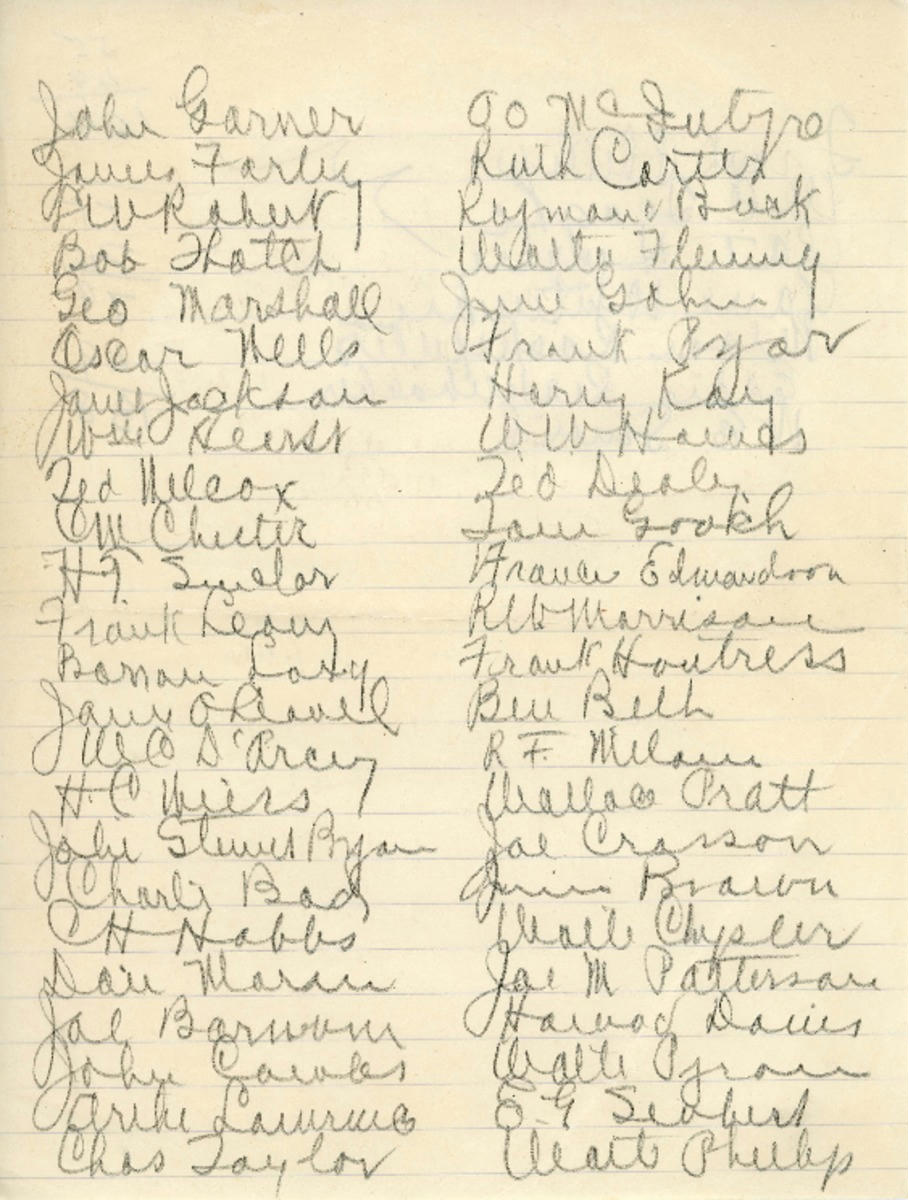 John Garner
James Farley
L W Robert
Bob Thatch
Geo Marshall
Oscar Wells
James Jackson
Wm Hearst
Ted Wilcox
C M Chester
H F Sinclar
Frank Leahy
Lary
James O Leavell
W C D'Arcy
H. C Wiess
John Stewart Bryan
Charlie Bad
C H Hobbs
Dan Moran
Joe Barnum
John Cowles
Lawrence
Chas Taylor
O O McIntyre
Ruth Carter
Raymond Buck
Walter Fleming
June Gohn
Frank Pyar
Harry Kay
W. W Hawes
Ted Dealey
Tom Gooch
France Edmondson
R W Morrison
Frank Huntress
Ben Belt
R F. Milam
Wallace Pratt
Joe Crosson
Brown
Walte Chrysler
Joe M Patterson
Harwood Davies
Walte Pyron
E. G Seubert
Walte Phelps